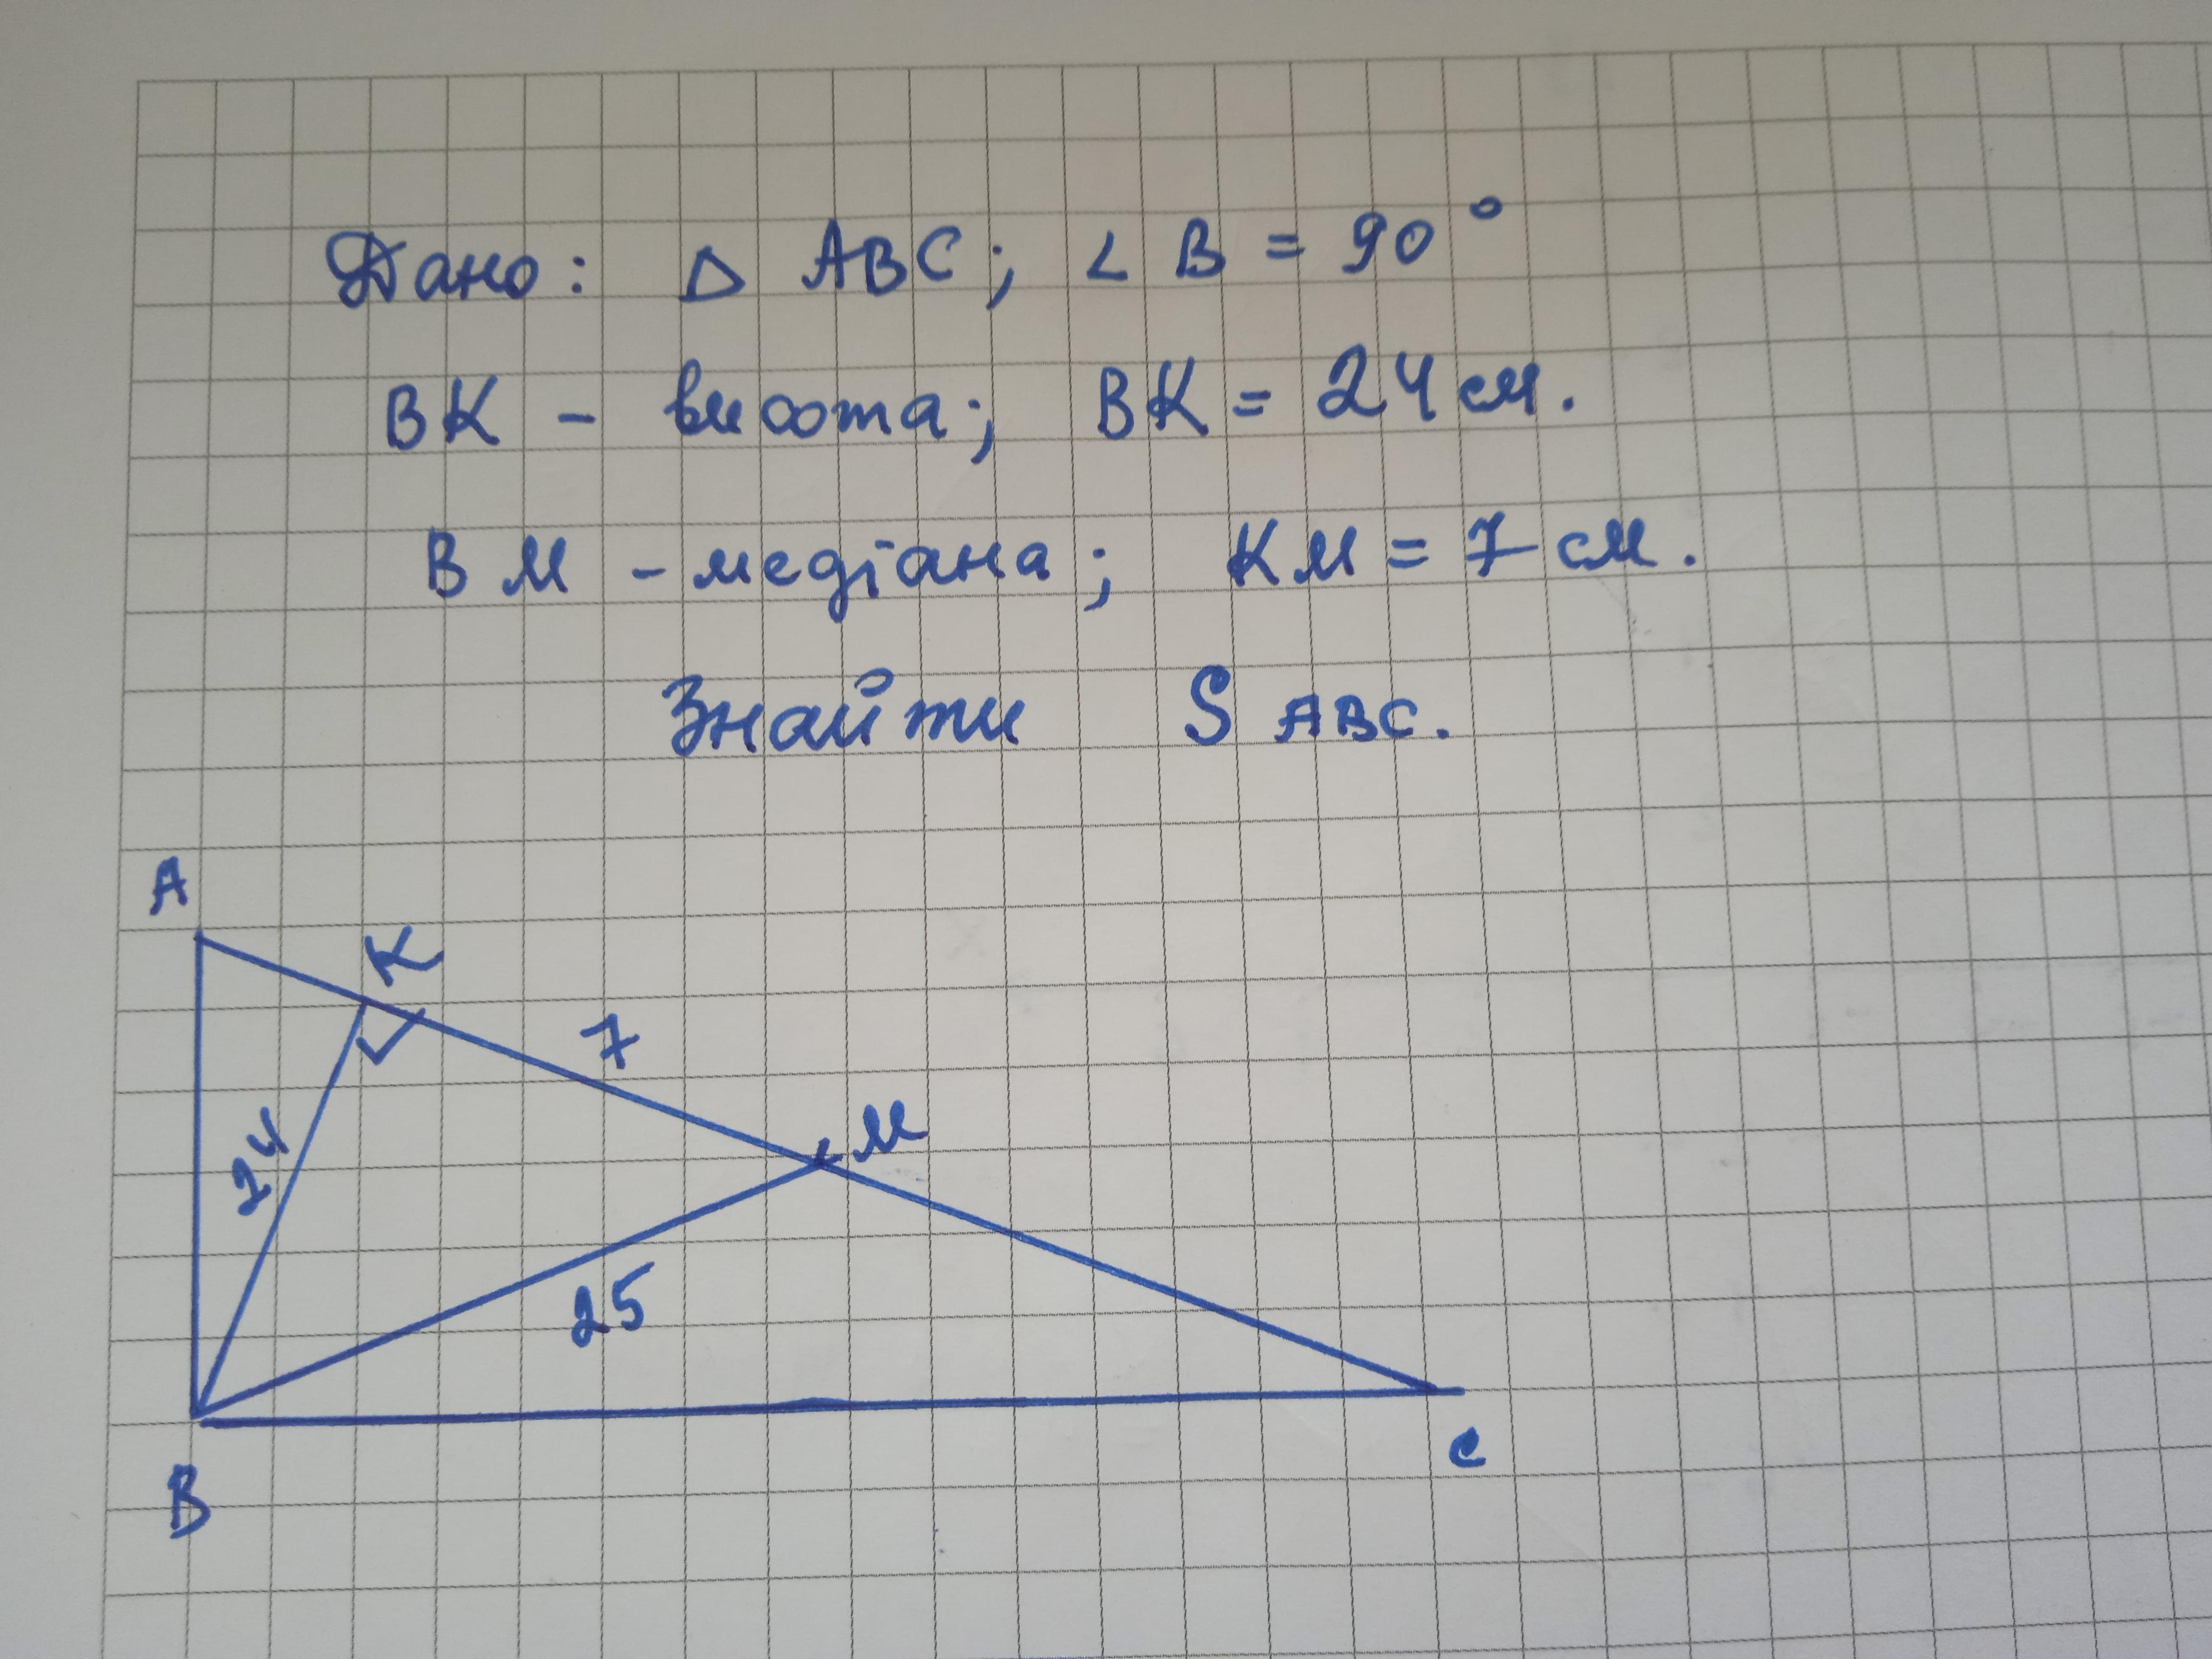 Дано: △ ABC; ∠ B = 90°
BK - висота; BK = 24 см.
BM - медіана; KM = 7 см.
Знайти S ABC.
A
K
7
24
M
25
B
C